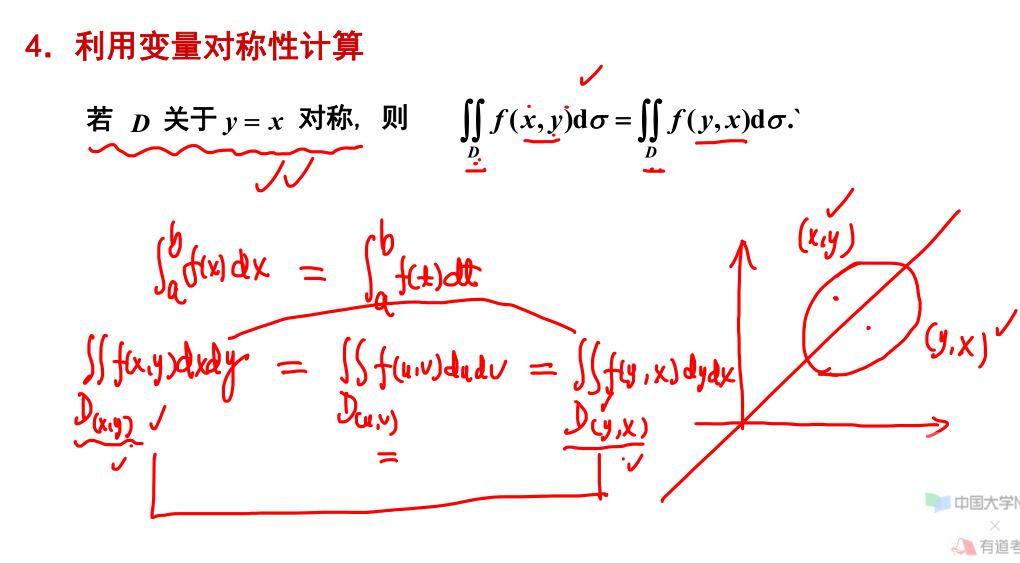 4. 利用变量对称性计算
若 D 关于 y = x 对称, 则 ∬_D f(x, y)dσ = ∬_D f(y, x)dσ.`
(x,y)
∫_a^b f(x)dx = ∫_a^b f(t)dt
(y,x)
∬_{D(x,y)} f(x,y)dxdy = ∬_{D(u,v)} f(u,v)dudv = ∬_{D(y,x)} f(y,x)dydx
=
中国大学M
×
有道考